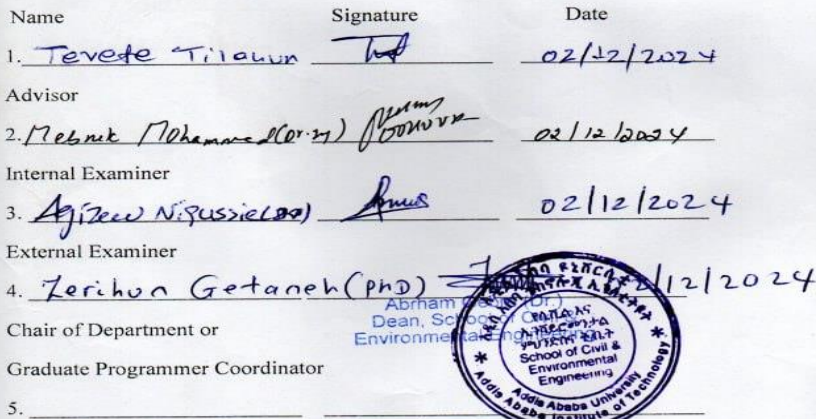 Name Signature Date
1. Tevede Tilahun 02/12/2024
Advisor
2. Mesnek Mohammed (Dr-ing) 02/12/2024
Internal Examiner
3. Agizew Nigussie 02/12/2024
External Examiner
4. Zerihun Getaneh (PhD) /12/2024
Abrham (Dr.)
Dean, School of Civil &
Environmental Engineering
Chair of Department or
Graduate Programmer Coordinator
5.
School of Civil &
Environmental
Engineering
Addis Ababa University
Addis Ababa Institute of Technology